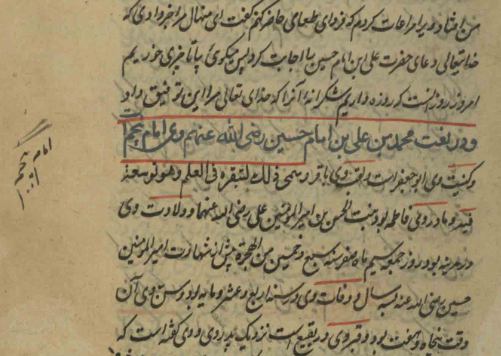 من افتاد ویرا مراعات کردم که فردای طعامی حاضر کنم گفت ای منهال مرا خبر دادی که
خدایتعالی دعای حضرت علی ابن امام حسین را اجابت کرد پس میگوی بیا تا چیزی خوریم
امروز روزیست که روزه داریم شکرانه آنرا که خدای تعالی مرا این توفیق داد
و در نعت محمد بن علی بن امام حسین رضی الله عنهم وی امام پنجم
و کنیت وی ابوجعفر است و لقب وی باقر و سمی ذلک لتبقره فی العلم و هو توسعه
فیه و مادر وی فاطمه بود بنت الحسن بن امیر المومنین علی رضی الله عنها و ولادت وی
در مدینه بود روز جمعه سیم ماه صفر سنه سبع و خمسین من الهجرة پیش از شهادت امیر المومنین
حسین رضی الله عنه بسه سال و وفات وی در سنه اربع و عشر و مایه بود و سن وی آن
وقت پنجاه و هفت بود و قبر وی در بقیع است نزدیک پدر وی و وی گفته است که
امام پنجم